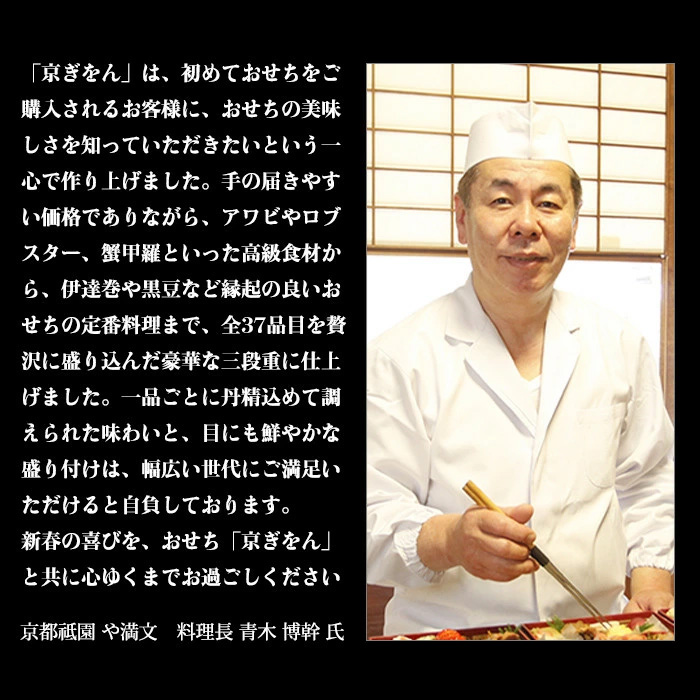 「京ぎをん」は、初めておせちをご
購入されるお客様に、おせちの美味
しさを知っていただきたいという一
心で作り上げました。手の届きやす
い価格でありながら、アワビやロブ
スター、蟹甲羅といった高級食材か
ら、伊達巻や黒豆など縁起の良いお
せちの定番料理まで、全37品目を贅
沢に盛り込んだ豪華な三段重に仕上
げました。一品ごとに丹精込めて調
えられた味わいと、目にも鮮やかな
盛り付けは、幅広い世代にご満足い
ただけると自負しております。
新春の喜びを、おせち「京ぎをん」
と共に心ゆくまでお過ごしください
京都祇園 や満文　料理長 青木 博幹 氏